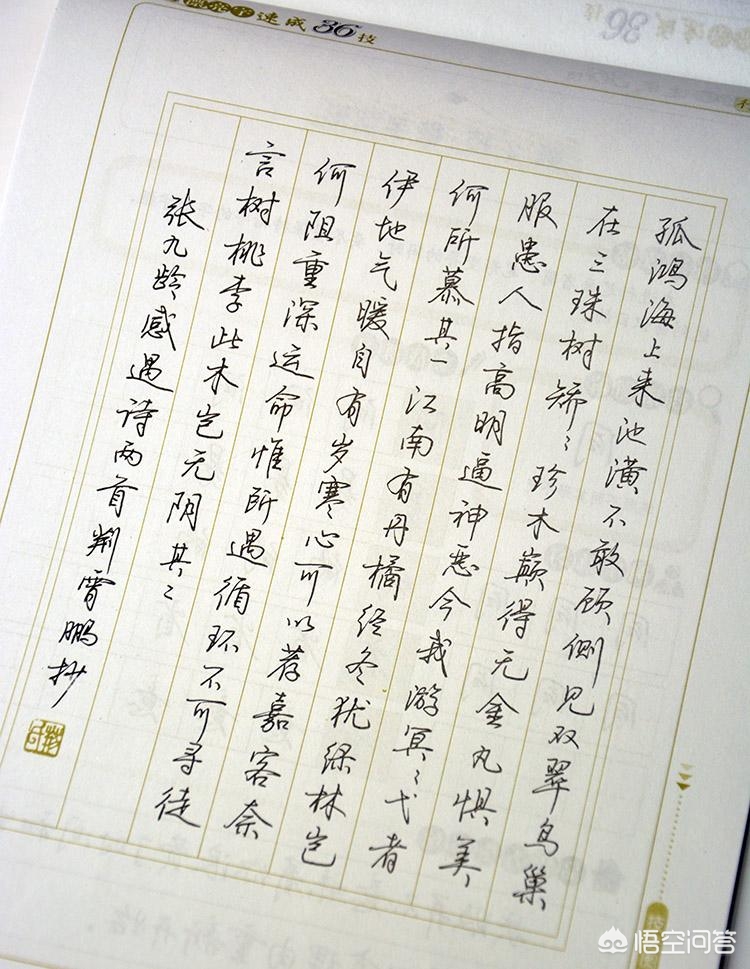 字速成36技
孤鸿海上来池潢不敢顾侧见双翠鸟巢
在三珠树矫〻珍木巅得无金丸惧美〻
服患人指高明逼神恶今我游冥〻弋者
何所慕其一江南有丹橘经冬犹绿林岂
伊地气暖自有岁寒心可以荐嘉客奈
何阻重深运命惟所遇循环不可寻徒
言树桃李此木岂无阴其二
张九龄感遇诗两首荆霄鹏抄
悟空问答